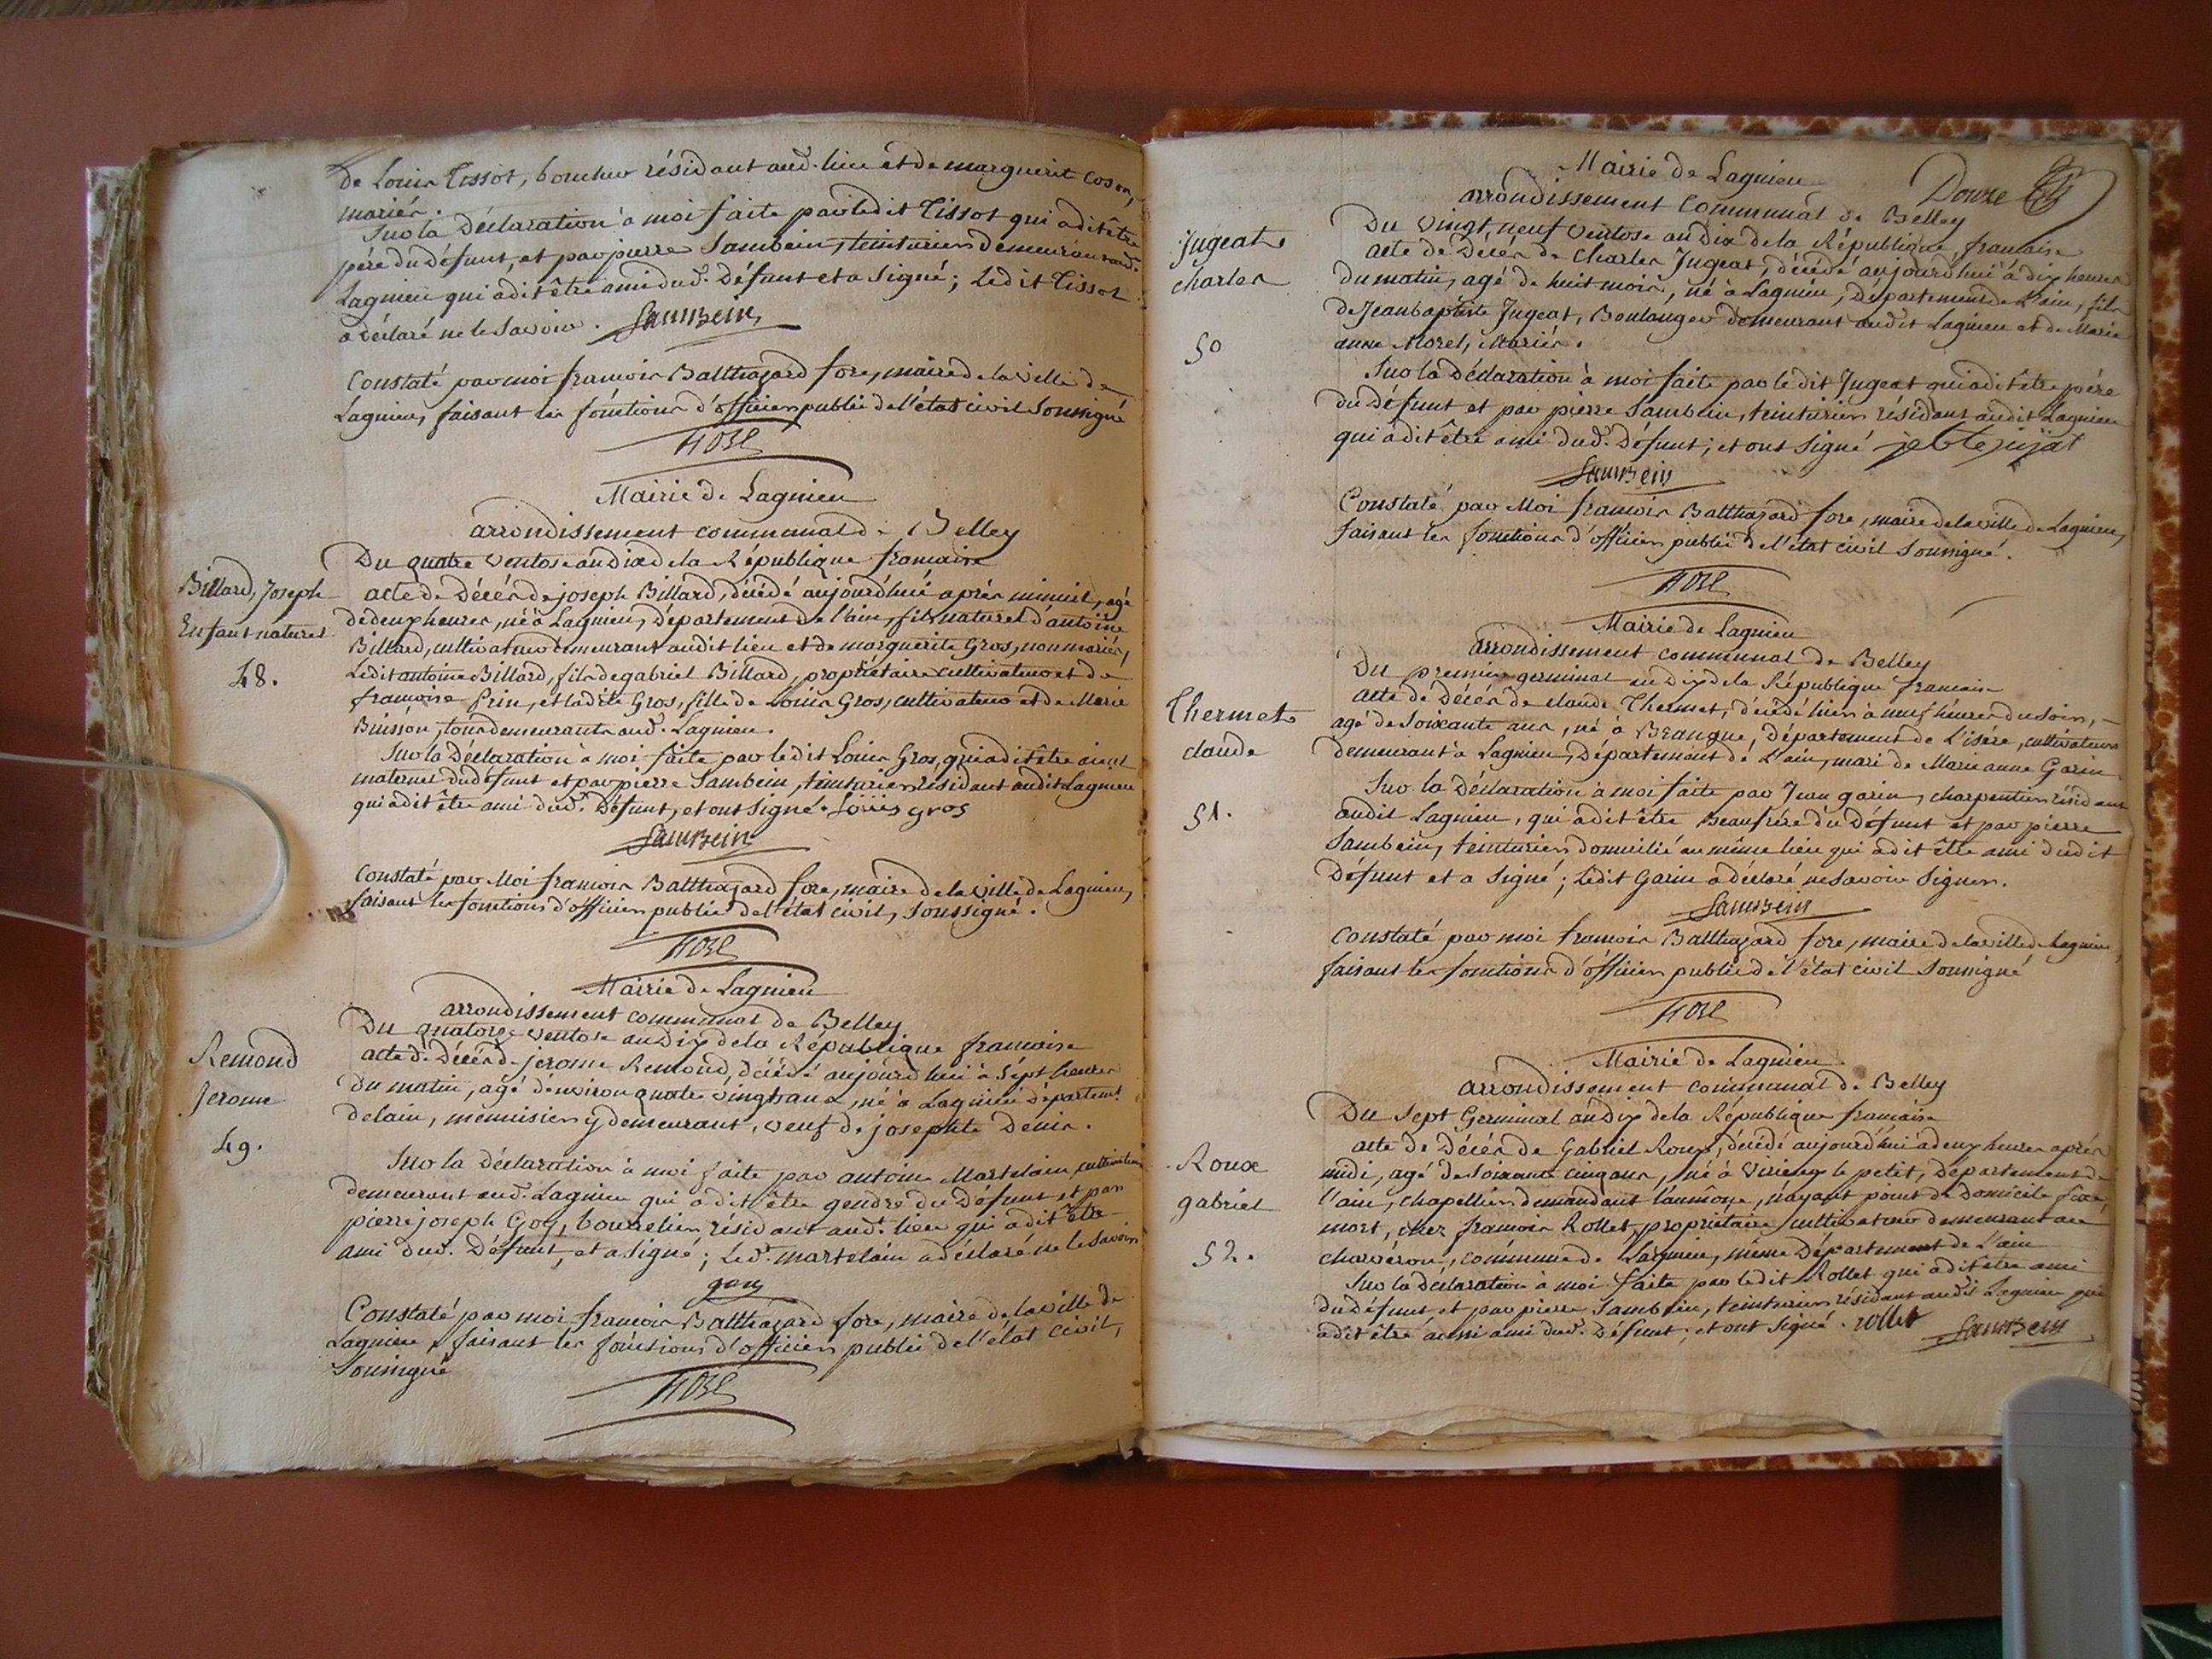 de Louis Tissot, boucher résidant aud. lieu et de marguerit Coson,
mariés.
Sur la Déclaration à moi faite par ledit Tissot qui a dit être
père du Défunt, et par pierre Sambein, teinturier demeurant aud.
Lagnieu qui a dit être ami dud. Défunt et a signé; Ledit Tissot
a déclaré ne le savoir. Sambein
Constaté par moi françois Balthazard fore, maire de la ville de
Lagnieu, faisant les fonctions d'officier public de l'état civil soussigné
fore
Mairie de Lagnieu
arrondissement communal de Belley
Billard, Joseph
Enfant naturel
48.
Du quatre ventose an Dix de la République française
acte de Décès de joseph Billard, décédé aujourd'hui après minuit, agé
de deux heures, né à Lagnieu, Département de l'ain, fils naturel d'antoine
Billard, cultivateur demeurant audit lieu et de marguerite Gros, non mariés,
Ledit antoine Billard, fils de gabriel Billard, propriétaire cultivateur et de
françoise frin, et ladite Gros, fille de Louis Gros, cultivateur et de Marie
Buisson, tous demeurants aud. Lagnieu.
Sur la Déclaration à moi faite par ledit Louis Gros, qui a dit être aieul
maternel du défunt et par pierre Sambein, teinturier résidant audit Lagnieu
qui a dit être ami dud. Défunt, et ont signé. Loüis gros
Sambein
Constaté par Moi françois Balthazard fore, maire de la ville de Lagnieu,
faisant les fonctions d'officier public de l'état civil, soussigné.
fore
Mairie de Lagnieu
arrondissement communal de Belley
Remond
Jerome
49.
Du quatorze ventose an Dix de la République française
acte de Décès de jerome Remond, décédé aujourd'hui à sept heures
du matin, agé d'environ quatre vingts ans, né à Lagnieu départemt.
de lain, menuisier y demeurant, veuf de josephte Denis.
Sur la déclaration à moi faite par antoine Martelain, cultivateur
demeurant aud. Lagnieu qui a dit être gendre du Défunt et par
pierre joseph Goy, bourrelier résidant aud. lieu qui a dit être
ami dud. Défunt, et a signé; Led. martelain a déclaré ne le savoir
goy
Constaté par moi françois Balthazard fore, maire de la ville de
Lagnieu, faisant les fonctions d'officier public de l'état civil,
soussigné
fore
Mairie de Lagnieu
Douze
arrondissement Communal de Belley
Jugeat
charles
50
Du vingt neuf ventose an Dix de la République française
acte de Décès de Charles Jugeat, décédé aujourd'hui à dix heures
du matin, agé de huit mois, né à Lagnieu, Département de L'ain, fils
de Jean baptiste Jugeat, Boulanger demeurant audit Lagnieu et de Marie
anne Morel, Mariés.
Sur la Déclaration à moi faite par le dit Jugeat qui a dit être père
du Défunt et par pierre Sambein, teinturier résidant audit Lagnieu
qui a dit être ami dud. Défunt; et ont signé jebte jujat
Sambein
Constaté par Moi françois Balthazard fore, maire de la ville de Lagnieu,
faisant les fonctions d'officier public de l'état civil soussigné.
fore
Mairie de Lagnieu
arrondissement communal de Belley
Thermet
claude
51.
Du premier germinal an dix de la République française
acte de Décès de claude Thermet, décédé hier à neuf heures du soir,
agé de soixante ans, né à Brangue, Département de L'isère, cultivateur
demeurant à Lagnieu, Département de L'ain, mari de Marie anne Garin
Sur la Déclaration à moi faite par Jean garin, charpentier résidant
audit Lagnieu, qui a dit être Beaufrère du Défunt et par pierre
Sambein, teinturier domicilié au même lieu qui a dit être ami dudit
Défunt et a signé; Ledit Garin a déclaré ne savoir signer.
Sambein
Constaté par moi françois Balthazard fore, maire de la ville de Lagnieu,
faisant les fonctions d'officier public de l'état civil soussigné
fore
Mairie de Lagnieu
arrondissement communal de Belley
Roux
gabriel
52.
Du sept Germinal an dix de la République française
acte de Décès de Gabriel Roux, décédé aujourd'hui à deux heures après
midi, agé de soixante cinq ans, né à Virieux le petit, Département de
l'ain, chapellier demandant l'aumône, n'ayant point de domicile fixe,
mort, chez françois Rollet, propriétaire cultivateur demeurant au
charvéron, commune de Lagnieu, même Département de L'ain
Sur la declaration à moi faite par ledit Rollet qui a dit être ami
du défunt et par pierre Sambein, teinturier résidant audit Lagnieu qui
a dit être aussi ami dud. Défunt; et ont signé. rollet Sambein